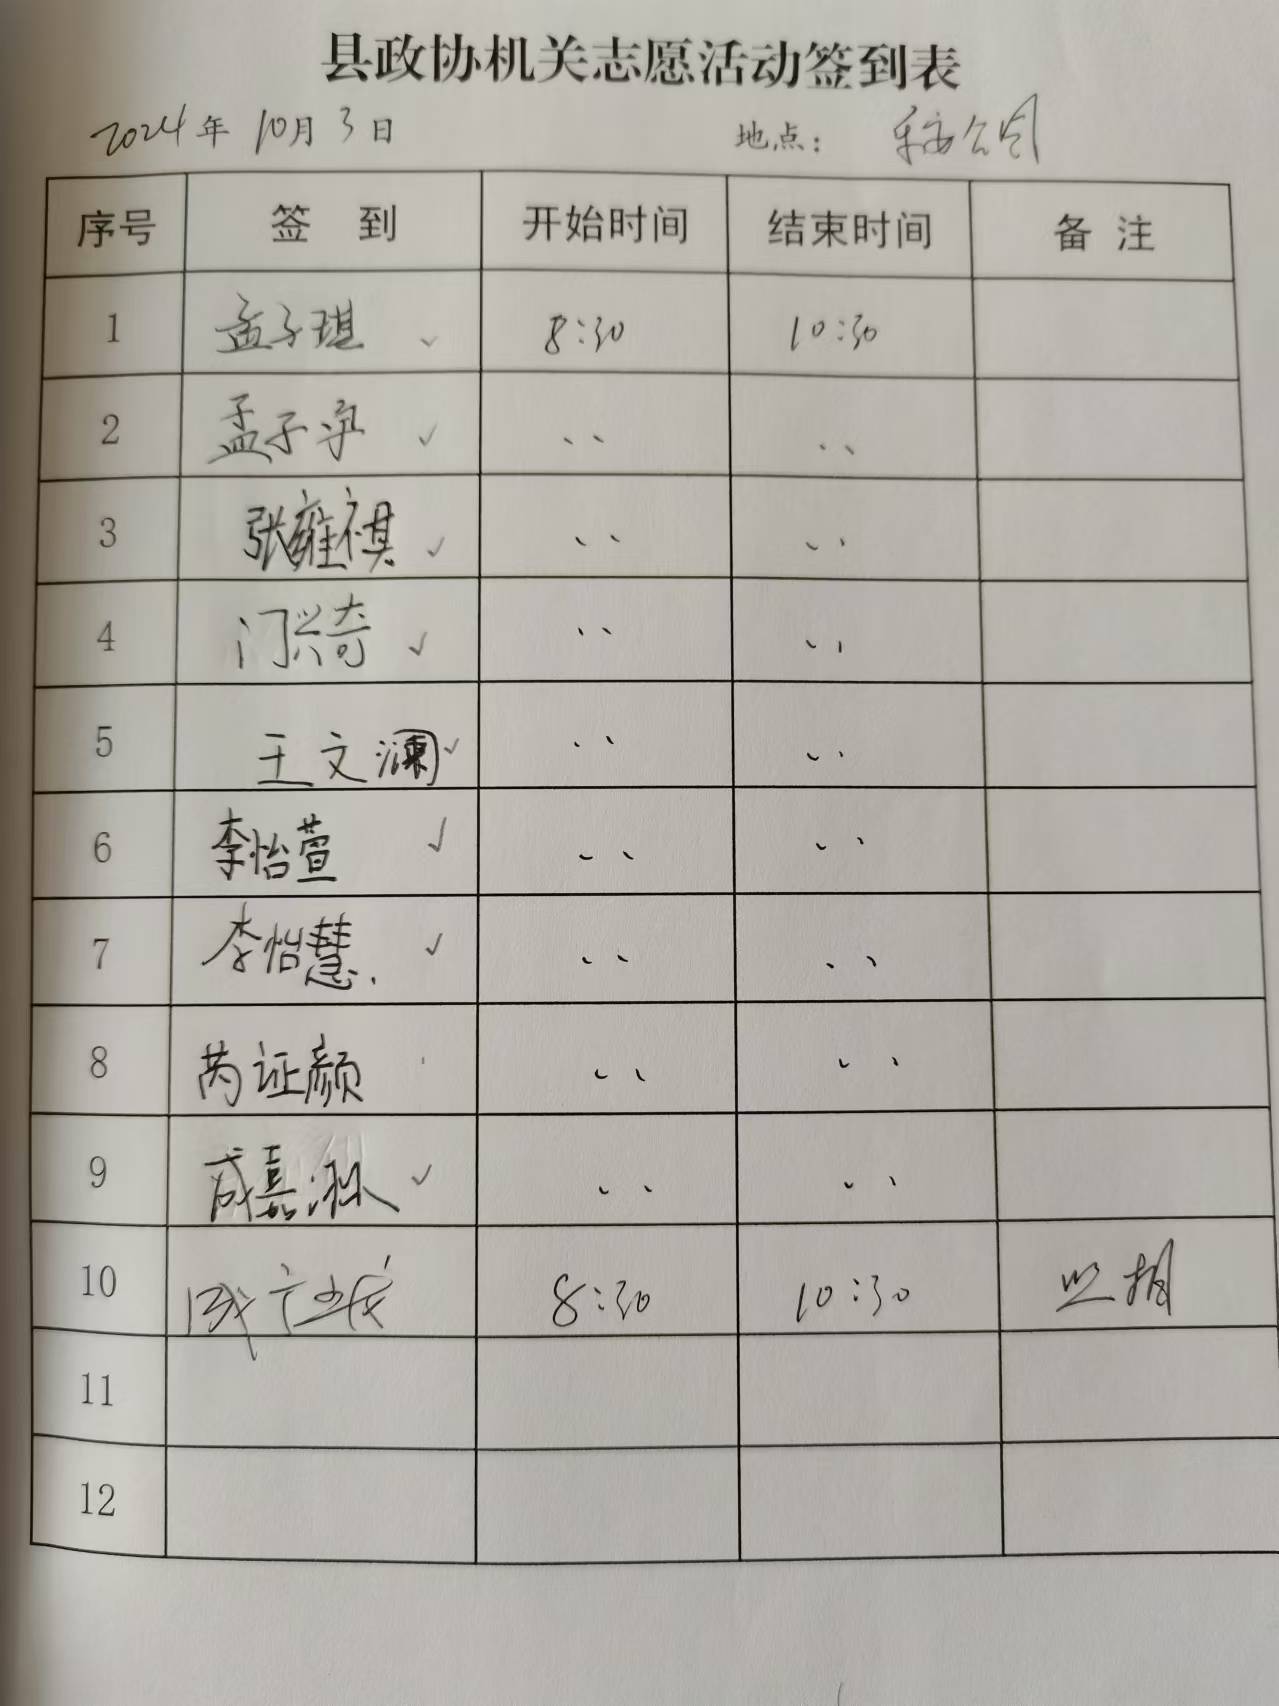 县政协机关志愿活动签到表
2024年10月3日 地点： 公司
序号 签 到 开始时间 结束时间 备 注
1 孟子琪 ✓ 8:30 10:30
2 孟子 ✓ 、、 、、
3 张雍祺 ✓ 、、 、、
4 门兴奇 ✓ 、、 、、
5 王文澜 ✓ 、、 、、
6 李怡萱 ✓ 、、 、、
7 李怡慧. ✓ 、、 、、
8 芮证颜 、、 、、
9 成嘉淋 ✓ 、、 、、
10 8:30 10:30 照相
11
12